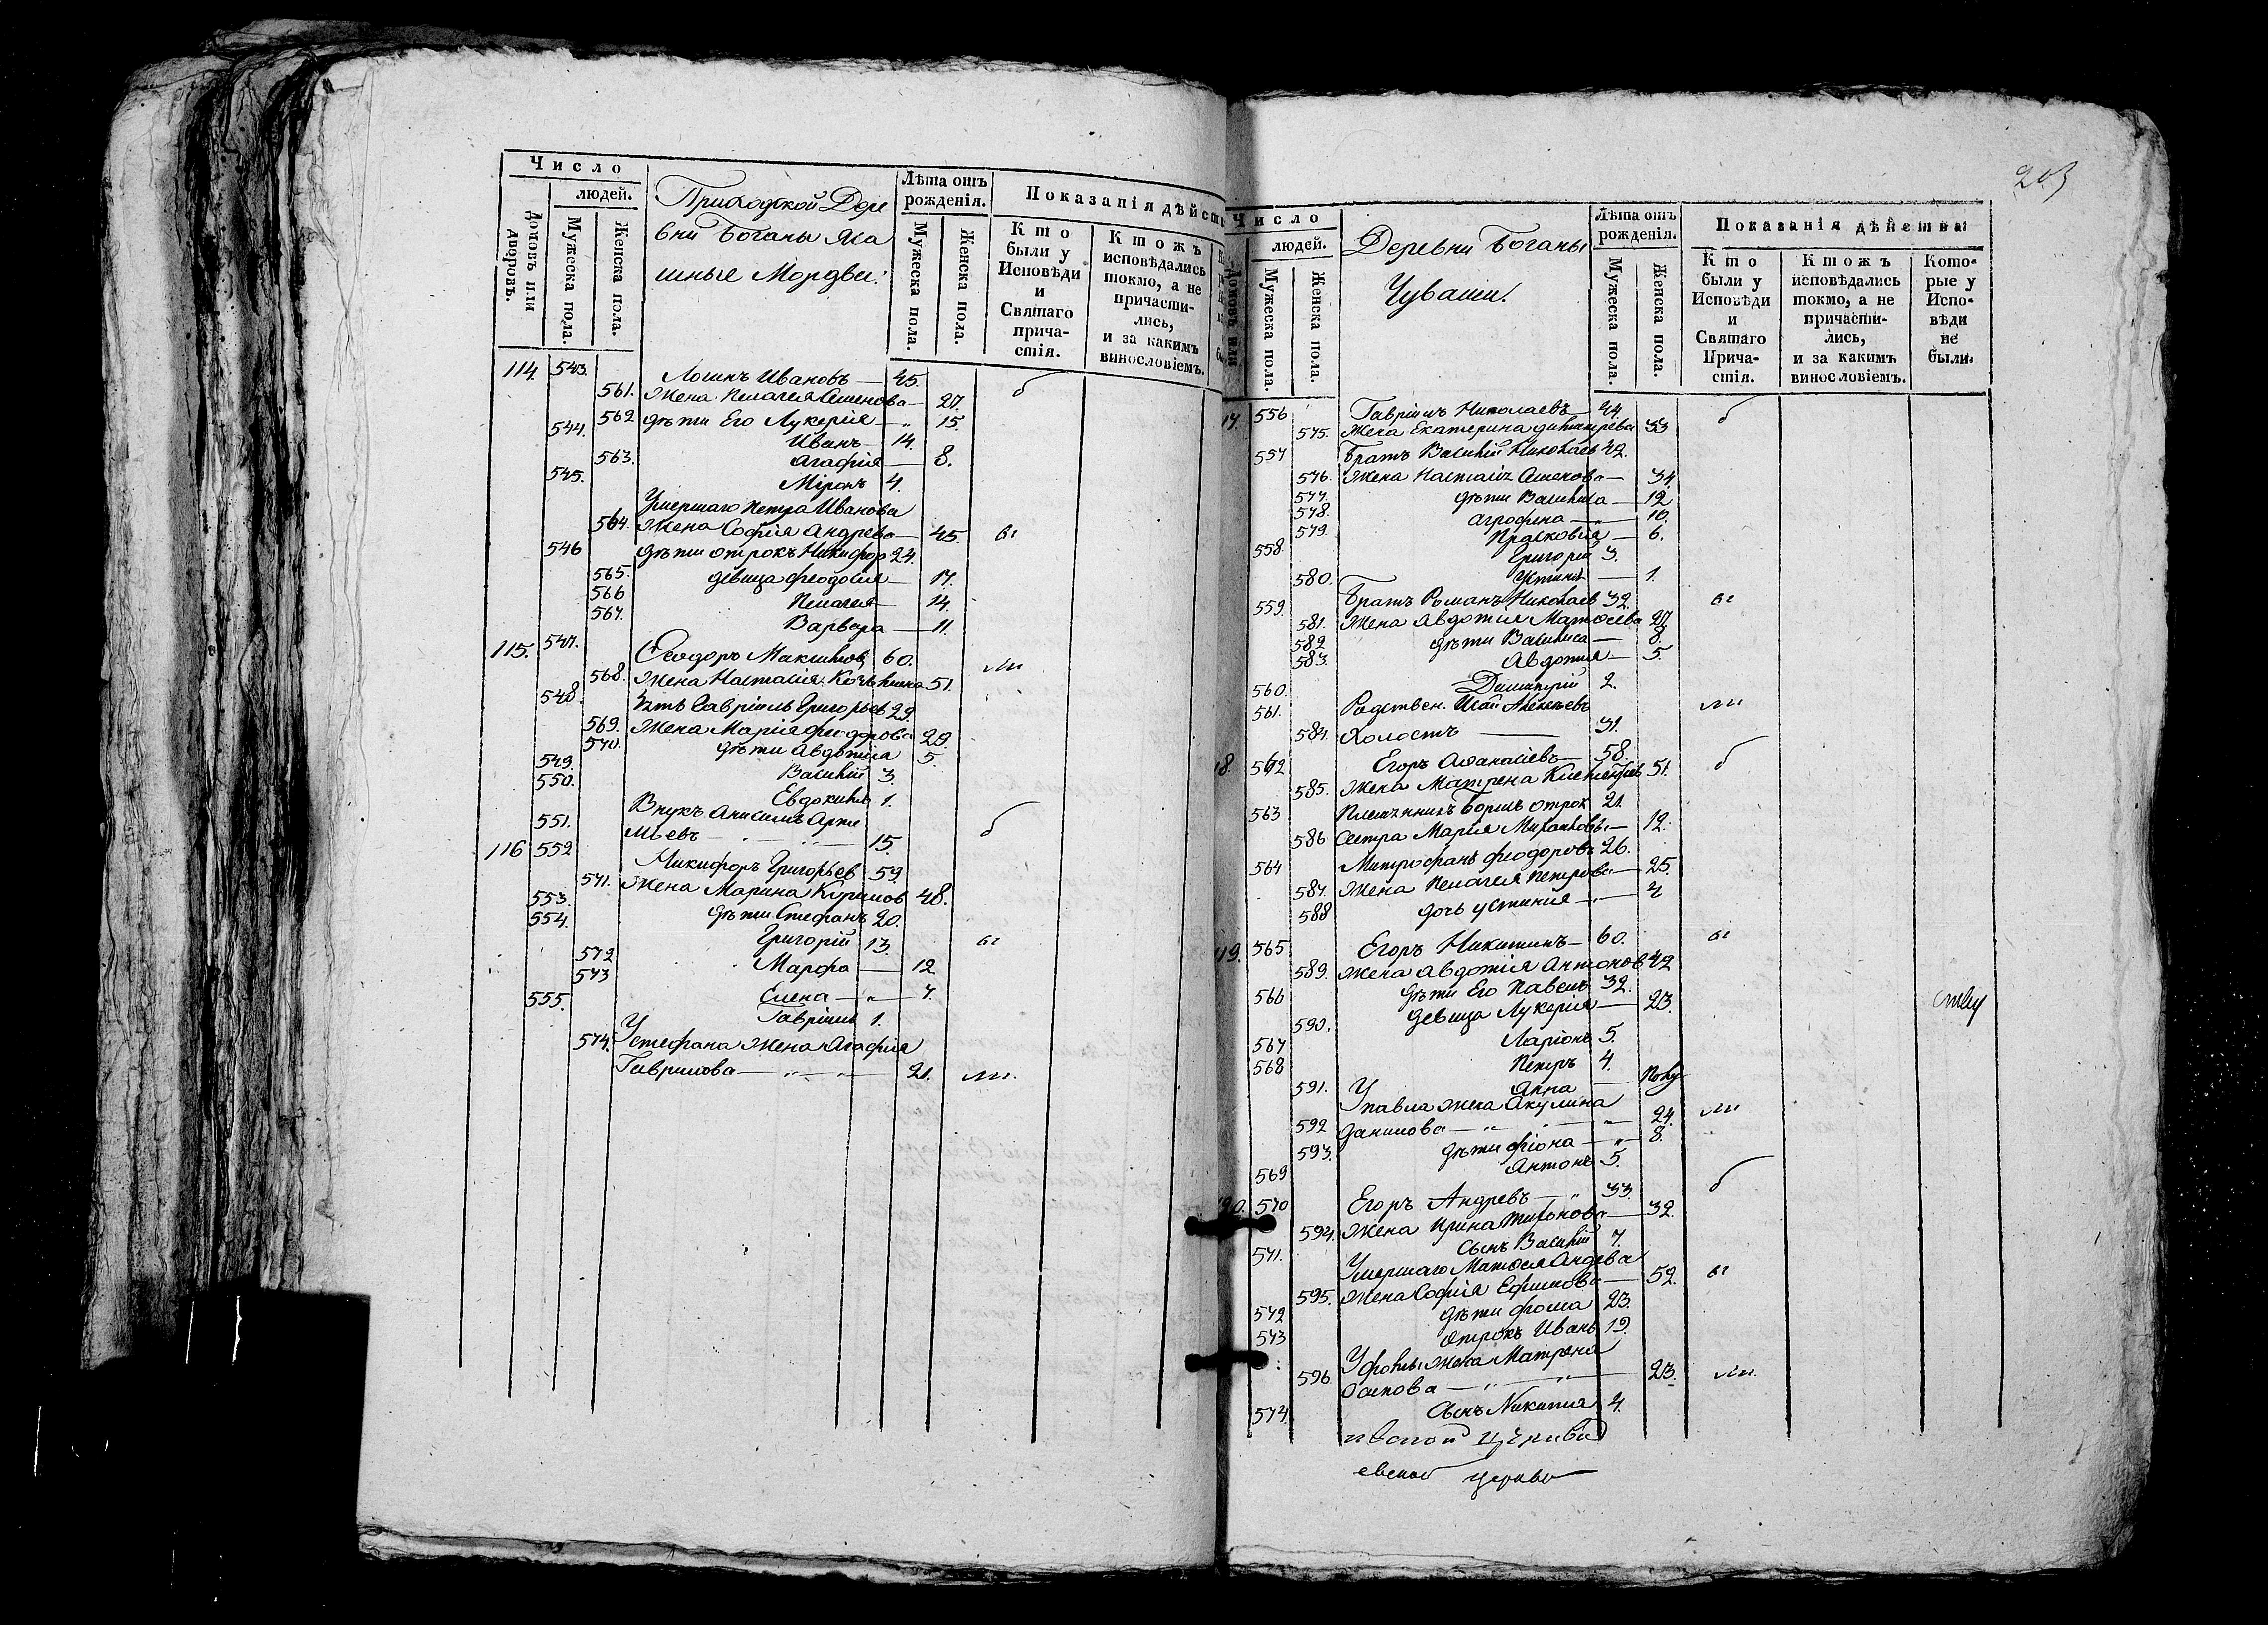 203
Число
людей.
Домовъ или дворовъ.
Мужеска пола.
Женска пола.
Приходской Дере
вни Боганы Яса
шные Мордви.
Лѣта отъ рожденія.
Мужеска пола.
Женска пола.
Показанія дѣйст
Кто были у Исповѣди и Святаго прича- стія.
Ктожъ исповѣдались токмо, а не причасти- лись, и за какимъ винословіемъ.
114. 543. Логинъ Ивановъ — 45.
561. Жена Пелагея Семенова — 27.
562 дѣти Его Лукерія — „ 15.
544. Иванъ — 14.
563. Агафія — 8.
545. Миронъ 4.
Умершаго Петра Иванова
564. Жена Софія Андрева — 45.
546 дѣти отрокъ Никифор 24.
565. девица феодосія — 17.
566 Пелагея — 14.
567. Варвара — 11.
115. 547. Феодоръ Максимов 60.
568. Жена Настасія 51.
548. Зять Гавріилъ Григорьев 29.
569. Жена Марія феодорова 29.
570. дѣти Авдотія 5
549. Василій 3.
550. Евдокимъ 1.
551. Внукъ Анисимъ Арте
мьевъ — 15
116 552 Никифоръ Григорьев 59.
571. Жена Марина Кирилов 48.
553. дѣти Стефанъ 20.
554. Григорій 13.
572 Марфа — 12
573 Елена — „ — 7.
555. Гавріилъ 1.
574. Устефана Жена Агафія
Гаврилова — „ — „ — 21.
Число
людей.
Домовъ или
Мужеска пола.
Женска пола.
Деревни Боганы
Чуваши.
Лѣта отъ рожденія.
Мужеска пола.
Женска пола.
Показанія дѣйства
Кто были у Исповѣди и Святаго Прича- стія.
Ктожъ исповѣдались токмо, а не причасти- лись, и за какимъ винословіемъ.
Кото- рые у Испо- вѣди не были.
17. 556 Гавріилъ Николаевъ — 44.
575. Жена Екатерина 33
557 братъ Василій Николаев 42.
576. Жена Настасія Семенова — 34
577. дѣти Василиса — 12
578. Агрофена — „ — 10.
579. Прасковія — 6.
558. Григорій 3.
580. Устинія — 1.
559. братъ Романъ Николаев 32.
581. Жена Авдотія Матвеева 27
582 дѣти Василиса — 8.
583. Авдотия — 5.
560. Димитрій 2.
561. Родствен. Исай Алексѣевъ
584. Холостъ — 31.
18. 562 Егоръ Афанасіевъ — 58.
585. Жена Матрена 51.
563 Племянникъ Борисъ отрок 21.
586 Сестра Марія — 12.
564 Митрофанъ феодоровъ 26.
587. Жена Пелагея Петрова — 25.
588 дочь Устиния — „ — 4
19. 565 Егоръ Никитинъ — 60.
589. Жена Авдотія Антонов 42
566 дѣти Его Павелъ 32.
590. девица Лукерія — 23.
567 Ларіонъ 5.
568 Петръ 4.
591. Анна — Полу
У павла жена Акулина
592 данилова — „ — „ — 24.
593. дѣти фіона — „ — 8.
569 Антонъ 5.
20. 570 Егоръ Андревъ — „ 33.
594. Жена Ирина — 32.
571. Сынъ Василій 7.
Умершаго Матфея Андева
595. Жена Софія Ефимова — 52.
572 дѣти фома 23.
573 Отрокъ Иванъ 19.
У фомы жена Матрена
596. — 23.
574. Сынъ Никита 4.
церкви